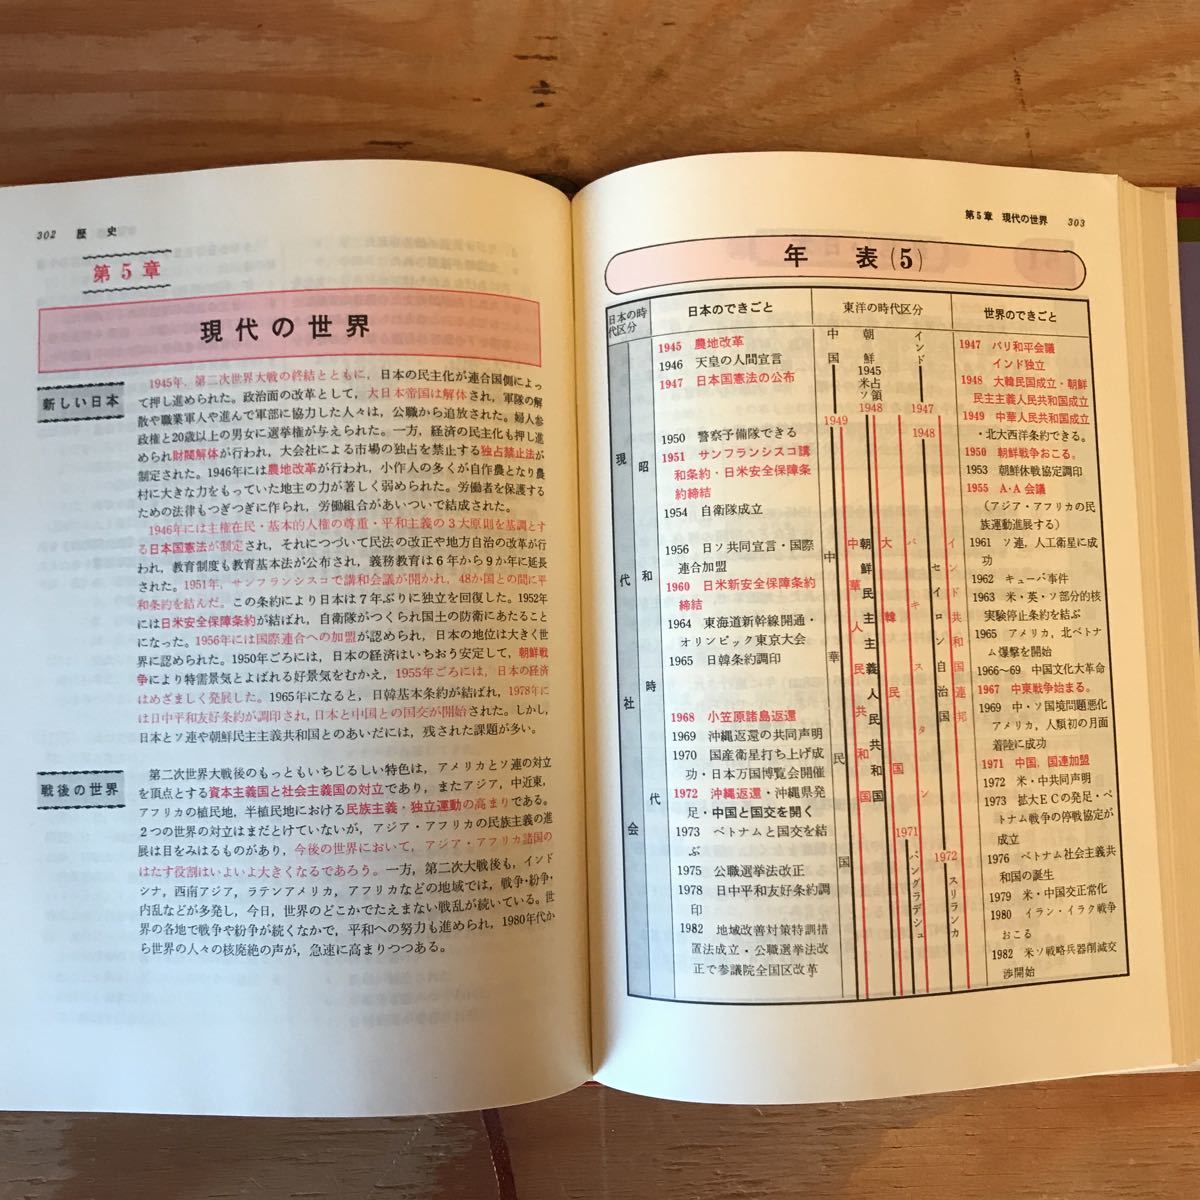 302 歴史
第5章
現代の世界
新しい日本
1945年，第二次世界大戦の終結とともに，日本の民主化が連合国側によっ
て押し進められた。政治面の改革として，大日本帝国は解体され，軍隊の解
散や職業軍人や進んで軍部に協力した人々は，公職から追放された。婦人参
政権と20歳以上の男女に選挙権が与えられた。一方，経済の民主化も押し進
められ財閥解体が行われ，大会社による市場の独占を禁止する独占禁止法が
制定された。1946年には農地改革が行われ，小作人の多くが自作農となり農
村に大きな力をもっていた地主の力が著しく弱められた。労働者を保護する
ための法律もつぎつぎに作られ，労働組合があいついで結成された。
1946年には主権在民・基本的人権の尊重・平和主義の3大原則を基調とす
る日本国憲法が制定され，それにつづいて民法の改正や地方自治の改革が行
われ，教育制度も教育基本法が公布され，義務教育は6年から9か年に延長
された。1951年，サンフランシスコで講和会議が開かれ，48か国との間に平
和条約を結んだ。この条約により日本は7年ぶりに独立を回復した。1952年
には日米安全保障条約が結ばれ，自衛隊がつくられ国土の防衛にあたること
になった。1956年には国際連合への加盟が認められ，日本の地位は大きく世
界に認められた。1950年ごろには，日本の経済はいちおう安定して，朝鮮戦
争により特需景気とよばれる好景気をむかえ，1955年ごろには，日本の経済
はめざましく発展した。1965年になると，日韓基本条約が結ばれ，1978年に
は日中平和友好条約が調印され，日本と中国との国交が開始された。しかし，
日本とソ連や朝鮮民主主義共和国とのあいだには，残された課題が多い。
戦後の世界
第二次世界大戦後のもっともいちじるしい特色は，アメリカとソ連の対立
を頂点とする資本主義国と社会主義国の対立であり，またアジア，中近東，
アフリカの植民地，半植民地における民族主義・独立運動の高まりである。
2つの世界の対立はまだとけていないが，アジア・アフリカの民族主義の進
展は目をみはるものがあり，今後の世界において，アジア・アフリカ諸国の
はたす役割はいよいよ大きくなるであろう。一方，第二次大戦後も，インド
シナ，西南アジア，ラテンアメリカ，アフリカなどの地域では，戦争・紛争・
内乱などが多発し，今日，世界のどこかでたえまない戦乱が続いている。世
界の各地で戦争や紛争が続くなかで，平和への努力も進められ，1980年代か
ら世界の人々の核廃絶の声が，急速に高まりつつある。
第5章 現代の世界 303
年表(5)
日本の時代区分
日本のできごと
東洋の時代区分
世界のできごと
現代社会
昭和時代
1945 農地改革
1946 天皇の人間宣言
1947 日本国憲法の公布
1950 警察予備隊できる
1951 サンフランシスコ講
和条約・日米安全保障条
約締結
1954 自衛隊成立
1956 日ソ共同宣言・国際
連合加盟
1960 日米新安全保障条約
締結
1964 東海道新幹線開通・
オリンピック東京大会
1965 日韓条約調印
1968 小笠原諸島返還
1969 沖縄返還の共同声明
1970 国産衛星打ち上げ成
功・日本万国博覧会開催
1972 沖縄返還・沖縄県発
足・中国と国交を開く
1973 ベトナムと国交を結
ぶ
1975 公職選挙法改正
1978 日中平和友好条約調
印
1982 地域改善対策特別措
置法成立・公職選挙法改
正で参議院全国区改革
中国
朝鮮
インド
1945
米ソ占領
1948
1947
1949
1948
中華民国
中華人民共和国
朝鮮民主主義人民共和国
大韓民国
パキスタン
セイロン自治国
インド共和国連邦
1971
バングラデシュ
1972
スリランカ
1947 パリ和平会議
インド独立
1948 大韓民国成立・朝鮮
民主主義人民共和国成立
1949 中華人民共和国成立
・北大西洋条約できる。
1950 朝鮮戦争おこる。
1953 朝鮮休戦協定調印
1955 A・A会議
（アジア・アフリカの民
族運動進展する）
1961 ソ連，人工衛星に成
功
1962 キューバ事件
1963 米・英・ソ部分的核
実験停止条約を結ぶ
1965 アメリカ，北ベトナ
ム爆撃を開始
1966～69 中国文化大革命
1967 中東戦争始まる。
1969 中・ソ国境問題悪化
アメリカ，人類初の月面
着陸に成功
1971 中国，国連加盟
1972 米・中共同声明
1973 拡大ECの発足・ベ
トナム戦争の停戦協定が
成立
1976 ベトナム社会主義共
和国の誕生
1979 米・中国交正常化
1980 イラン・イラク戦争
おこる
1982 米ソ戦略兵器削減交
渉開始